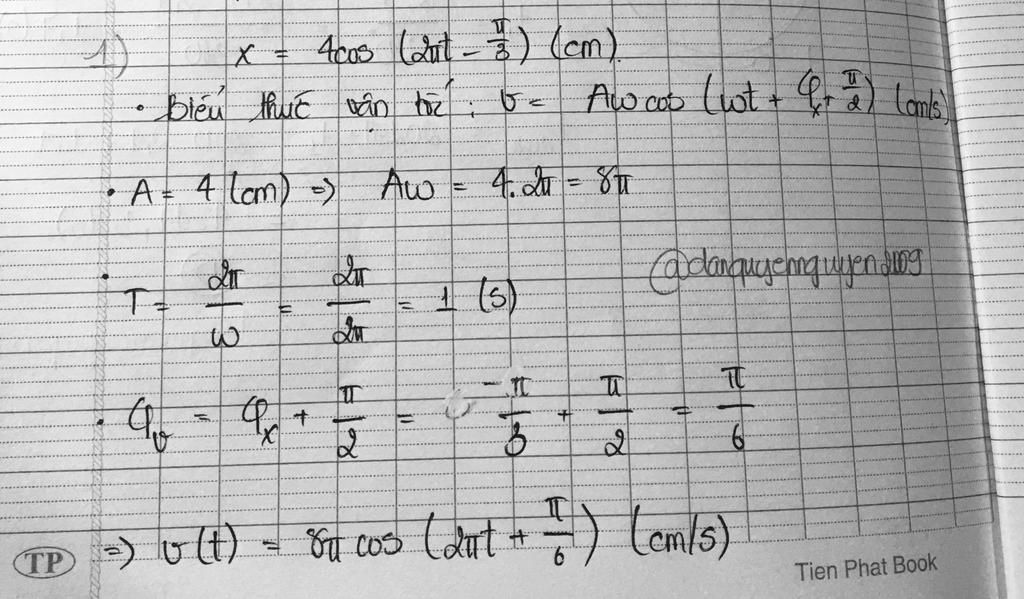 1) x = 4cos (2πt - π/3) (cm).
• Biểu thức vận tốc : v = Aω cos (ωt + φx + π/2) (cm/s)
• A = 4 (cm) => Aω = 4. 2π = 8π
@danquyennguyen2009
• T = 2π/ω = 2π/2π = 1 (s)
• φv = φx + π/2 = -π/3 + π/2 = π/6
=> v(t) = 8π cos (2πt + π/6) (cm/s)
TP
Tien Phat Book